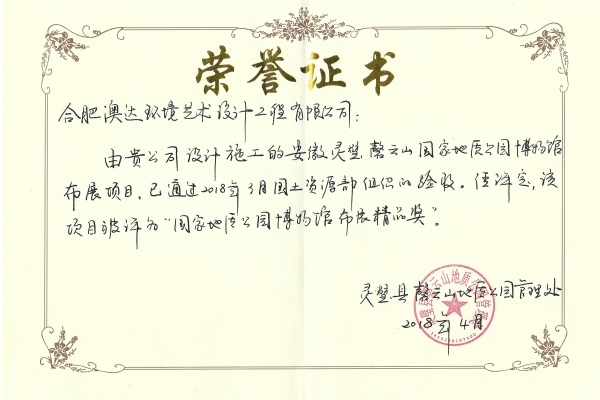 荣誉证书
合肥澳达环境艺术设计工程有限公司:
由贵公司设计施工的安徽灵璧磬云山国家地质公园博物馆
布展项目,已通过2018年3月国土资源部组织的验收。经评定,该
项目被评为“国家地质公园博物馆布展精品奖”。
灵璧县磬云山地质公园管理处
2018年4月